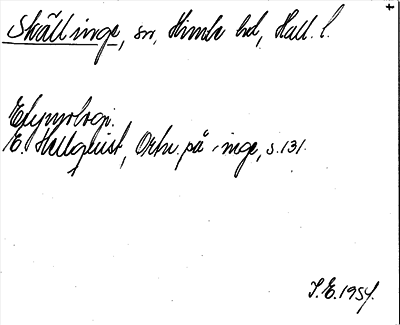 Skällinge, sn, Himle hd, Hall. l.
Etymologi.
E. Hellquist, Ortn. på -inge, s. 131.
I.E. 1954.